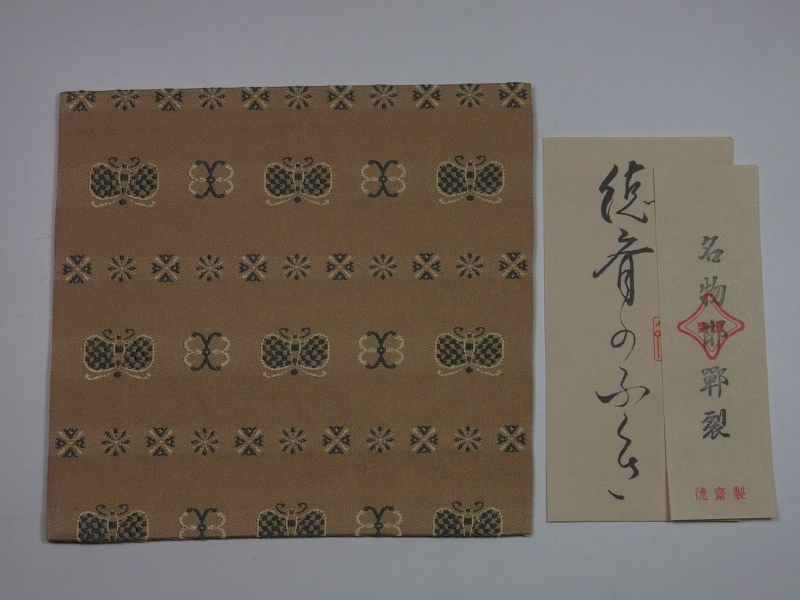 徳斎のふくさ
名物邯鄲裂
徳齋製